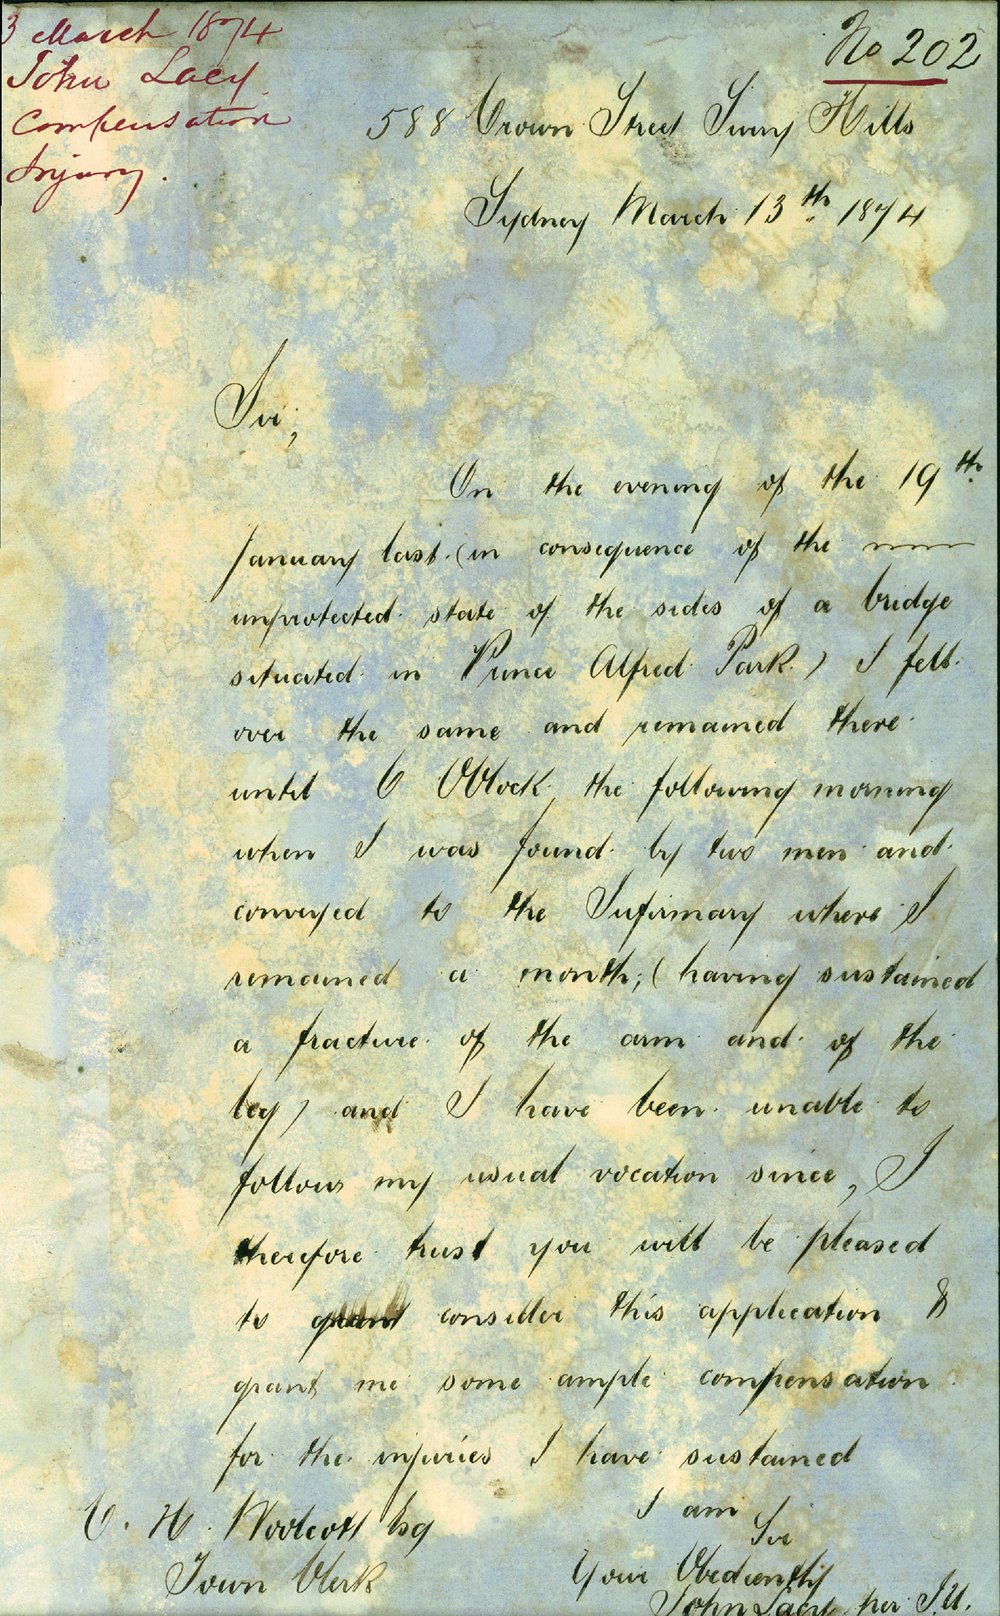 3 March 1874
John Lacy
Compensation
Injury.
No 202
588 Crown Street Surry Hills
Sydney March 13th 1874
Sir,
On the evening of the 19th
January last (in consequence of the
unprotected state of the sides of a bridge
situated in Prince Alfred Park) I fell
over the same and remained there
until 6 OClock the following morning
when I was found by two men and
conveyed to the Infirmary where I
remained a month; (having sustained
a fracture of the arm and of the
leg) and I have been unable to
follow my usual vocation since, I
therefore trust you will be pleased
to grant consider this application &
grant me some ample compensation
for the injuries I have sustained
I am
Sir
Your Obediently
John Lacy per
C. H. Woolcott Esq
Town Clerk